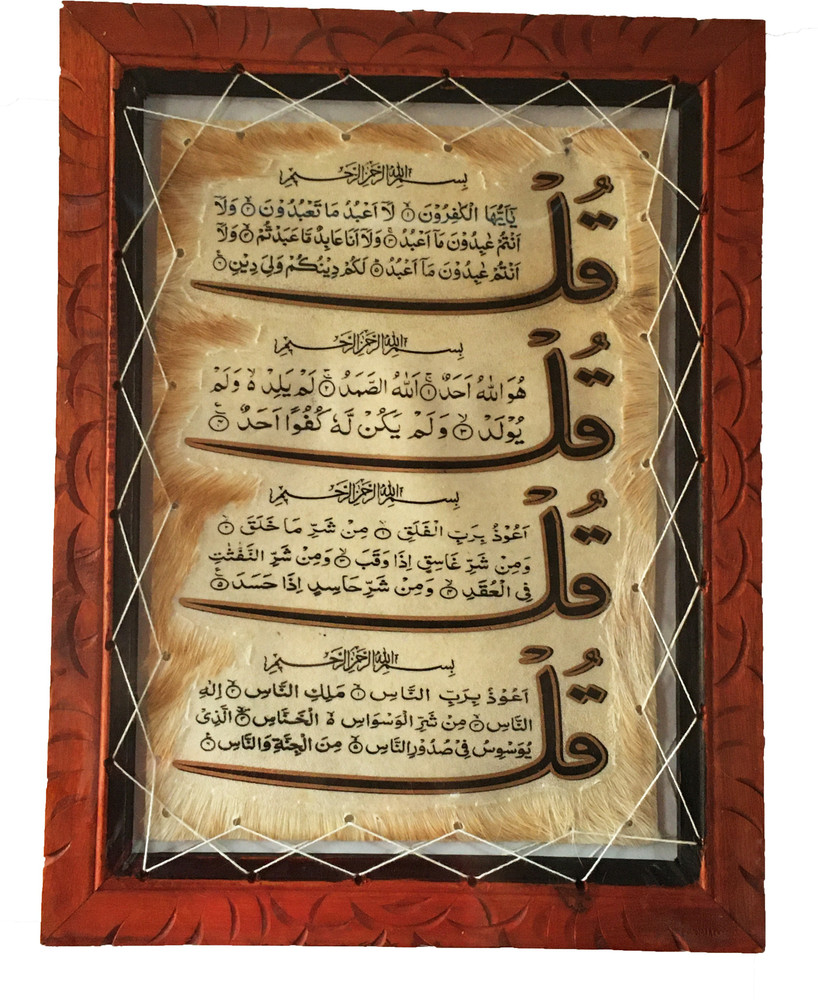 بِسْمِ اللهِ الرَّحْمٰنِ الرَّحِيْمِ
قُلْ يٰٓاَيُّهَا الْكٰفِرُوْنَ ۱ لَآ اَعْبُدُ مَا تَعْبُدُوْنَ ۲ وَلَآ
اَنْتُمْ عٰبِدُوْنَ مَآ اَعْبُدُ ۳ وَلَآ اَنَا عَابِدٌ مَّا عَبَدْتُّمْ ۴ وَلَآ
اَنْتُمْ عٰبِدُوْنَ مَآ اَعْبُدُ ۵ لَكُمْ دِيْنُكُمْ وَلِيَ دِيْنِ ۶
بِسْمِ اللهِ الرَّحْمٰنِ الرَّحِيْمِ
قُلْ هُوَ اللهُ اَحَدٌ ۱ اَللهُ الصَّمَدُ ۲ لَمْ يَلِدْ ۙ وَلَمْ
يُوْلَدْ ۳ وَلَمْ يَكُنْ لَّهٗ كُفُوًا اَحَدٌ ۴
بِسْمِ اللهِ الرَّحْمٰنِ الرَّحِيْمِ
قُلْ اَعُوْذُ بِرَبِّ الْفَلَقِ ۱ مِنْ شَرِّ مَا خَلَقَ ۲
وَمِنْ شَرِّ غَاسِقٍ اِذَا وَقَبَ ۳ وَمِنْ شَرِّ النَّفّٰثٰتِ
فِي الْعُقَدِ ۴ وَمِنْ شَرِّ حَاسِدٍ اِذَا حَسَدَ ۵
بِسْمِ اللهِ الرَّحْمٰنِ الرَّحِيْمِ
قُلْ اَعُوْذُ بِرَبِّ النَّاسِ ۱ مَلِكِ النَّاسِ ۲ اِلٰهِ
النَّاسِ ۳ مِنْ شَرِّ الْوَسْوَاسِ ۙ الْخَنَّاسِ ۴ الَّذِيْ
يُوَسْوِسُ فِيْ صُدُوْرِ النَّاسِ ۵ مِنَ الْجِنَّةِ وَالنَّاسِ ۶